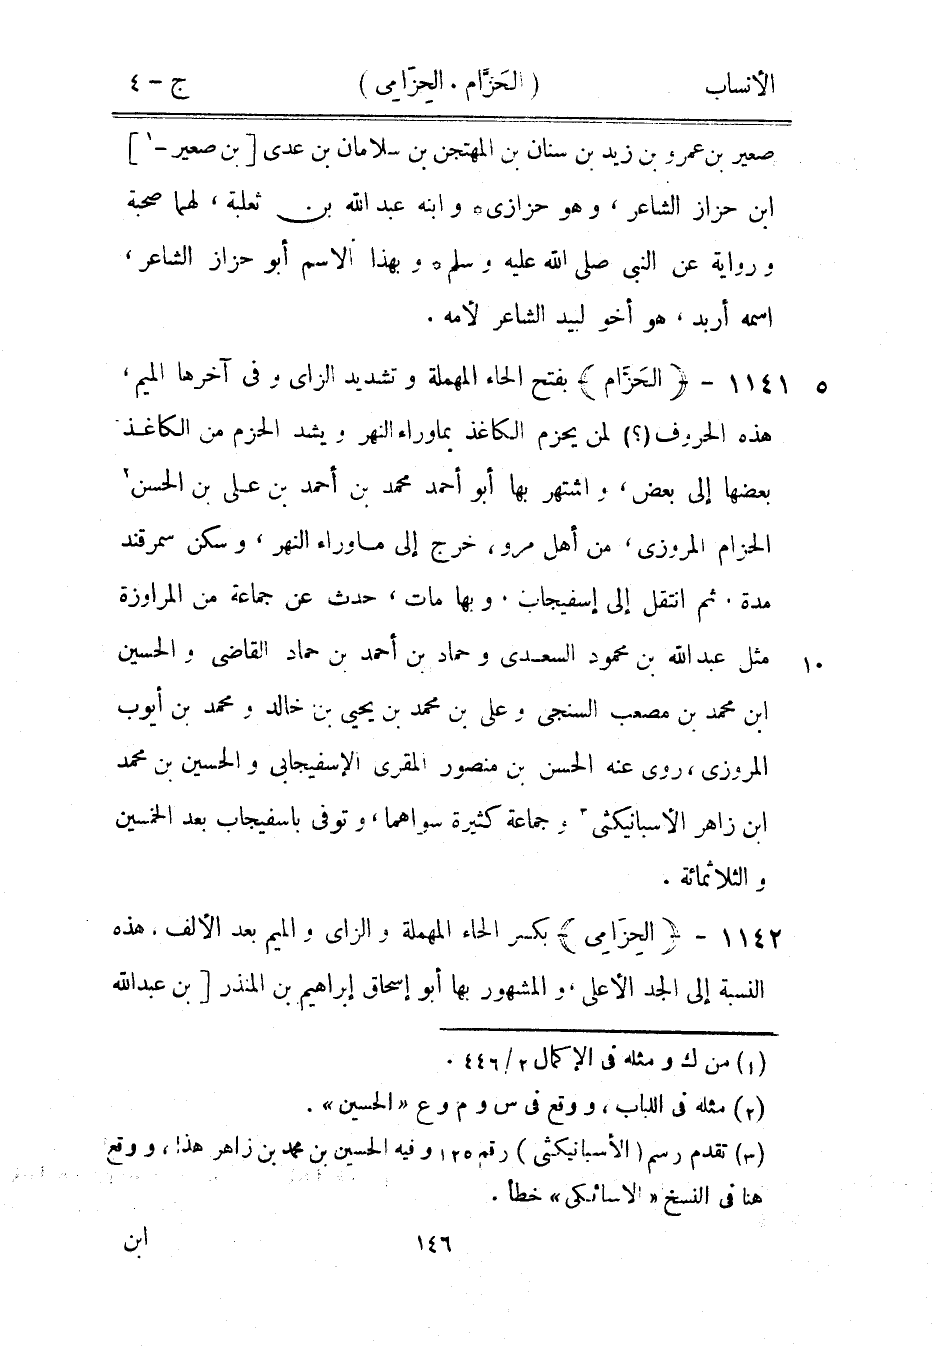 الأنساب ( الحَزَّام . الحِزَامى ) ج – ٤
صعير بن عمرو بن زيد بن سنان بن المهتجن بن سلامان بن عدى [ بن صعير – ١ ]
ابن حزاز الشاعر ، و هو حزازى ه و ابنه عبد الله بن ثعلبة ، لهما صحبة
و رواية عن النبى صلى الله عليه و سلم ه و بهذا الاسم أبو حزاز الشاعر ،
اسمه أربد ، هو أخو لبيد الشاعر لأمه .
٥ ١١٤١ – ﴿ الحَزَّام ﴾ بفتح الحاء المهملة و تشديد الزاى و فى آخرها الميم ،
هذه الحروف (؟) لمن يحزم الكاغذ بماوراء النهر و يشد الحزم من الكاغـذ
بعضها إلى بعض ، و اشتهر بها أبو أحمد محمد بن أحمد بن عـلى بن الحسن ٢
الحزام المروزى ، من أهل مرو ، خرج إلى مـاوراء النهر ، و سكن سمرقند
مدة . ثم انتقل إلى إسفيجاب . و بها مات ، حدث عن جماعة من المراوزة
١٠ مثل عبد الله بن محمود السعـدى و حماد بن أحمد بن حماد القاضى و الحسين
ابن محمد بن مصعب السنجى و على بن محمد بن يحيى بن خالد و محمد بن أيوب
المروزى ، روى عنه الحسن بن منصور المقرى الإسفيجابى و الحسين بن محمد
ابن زاهر الأسبانيكثى ٣ و جماعة كثيرة سواهما ، و توفى باسفيجاب بعد الخمسين
و الثلاثمائة .
١١٤٢ – ﴿ الحِزَامى ﴾ بكسر الحاء المهملة و الزاى و الميم بعد الألف . هذه
النسبة إلى الجد الأعلى ، و المشهور بها أبو إسحاق إبراهيم بن المنذر [ بن عبد الله
(١) من ك و مثله فى الإكمال ٢/٤٤٦ .
(٢) مثله فى اللباب ، و وقع فى س و م و ع «الحسين» .
(٣) تقدم رسم ( الأسبانيكثى ) رقم ١٢٥ و فيه الحسين بن محمد بن زاهر هذا ، و وقع
هنا فى النسخ « الاسائكى» خطأ .
١٤٦ ابن